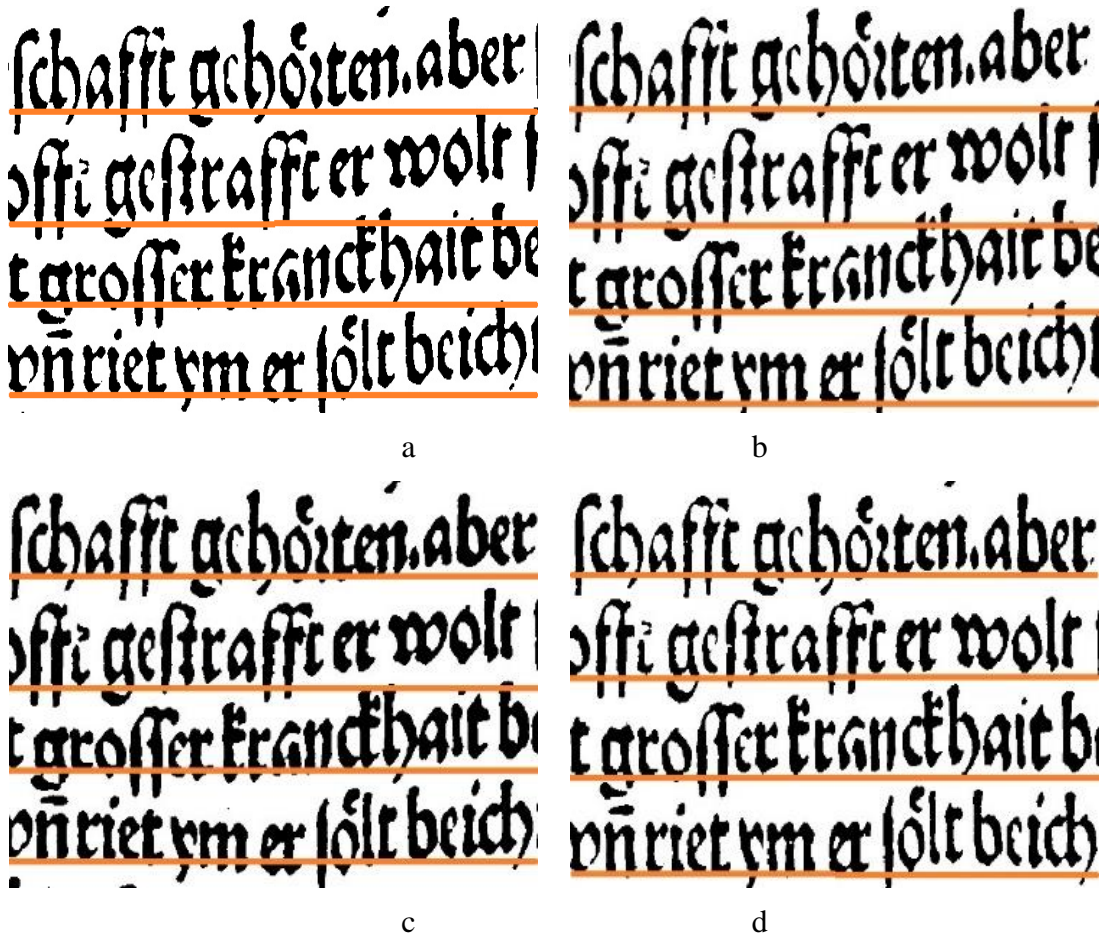 ſchafft gehoͤꝛten.aber
geſtrafft er wolt
t groſſer kranckhait be
vn̄ riet ym er ſoͤlt beich
a
ſchafft gehoͤꝛten.aber
geſtrafft er wolt
t groſſer kranckhait be
vn̄ riet ym er ſoͤlt beich
b
ſchafft gehoͤꝛten.aber
geſtrafft er wolt
t groſſer kranckhait b
vn̄ riet ym er ſoͤlt beich
c
ſchafft gehoͤꝛten.aber
geſtrafft er wolt
t groſſer kranckhait b
vn̄ riet ym er ſoͤlt beich
d